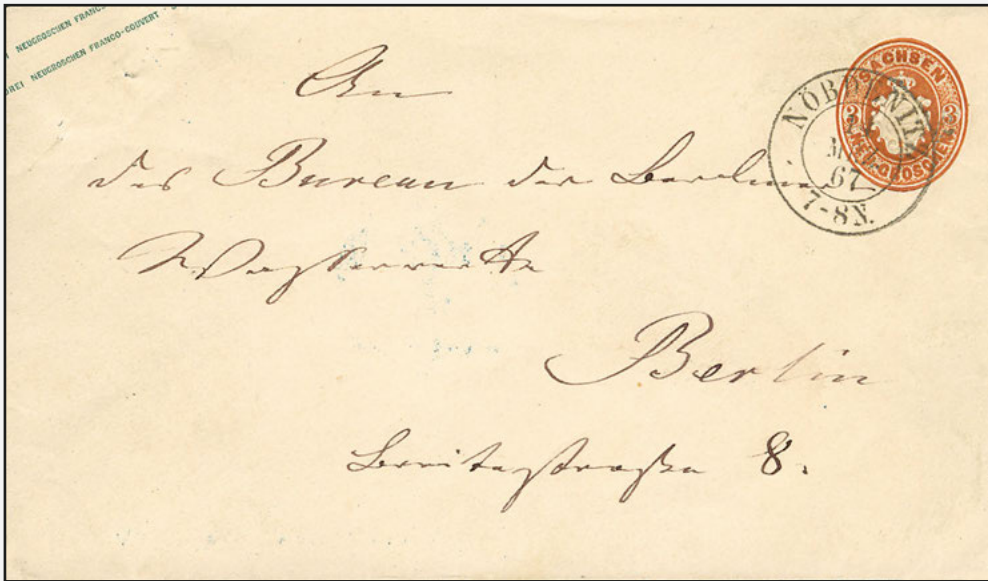 NEUGROSCHEN FRANCO-
DREI NEUGROSCHEN FRANCO-COUVERT
SACHSEN
3 NEU-GROSCHEN 3
NÖBDENITZ
67
7-8N.
An
das Bureau der Berliner
Berlin
Breitestraße 8.